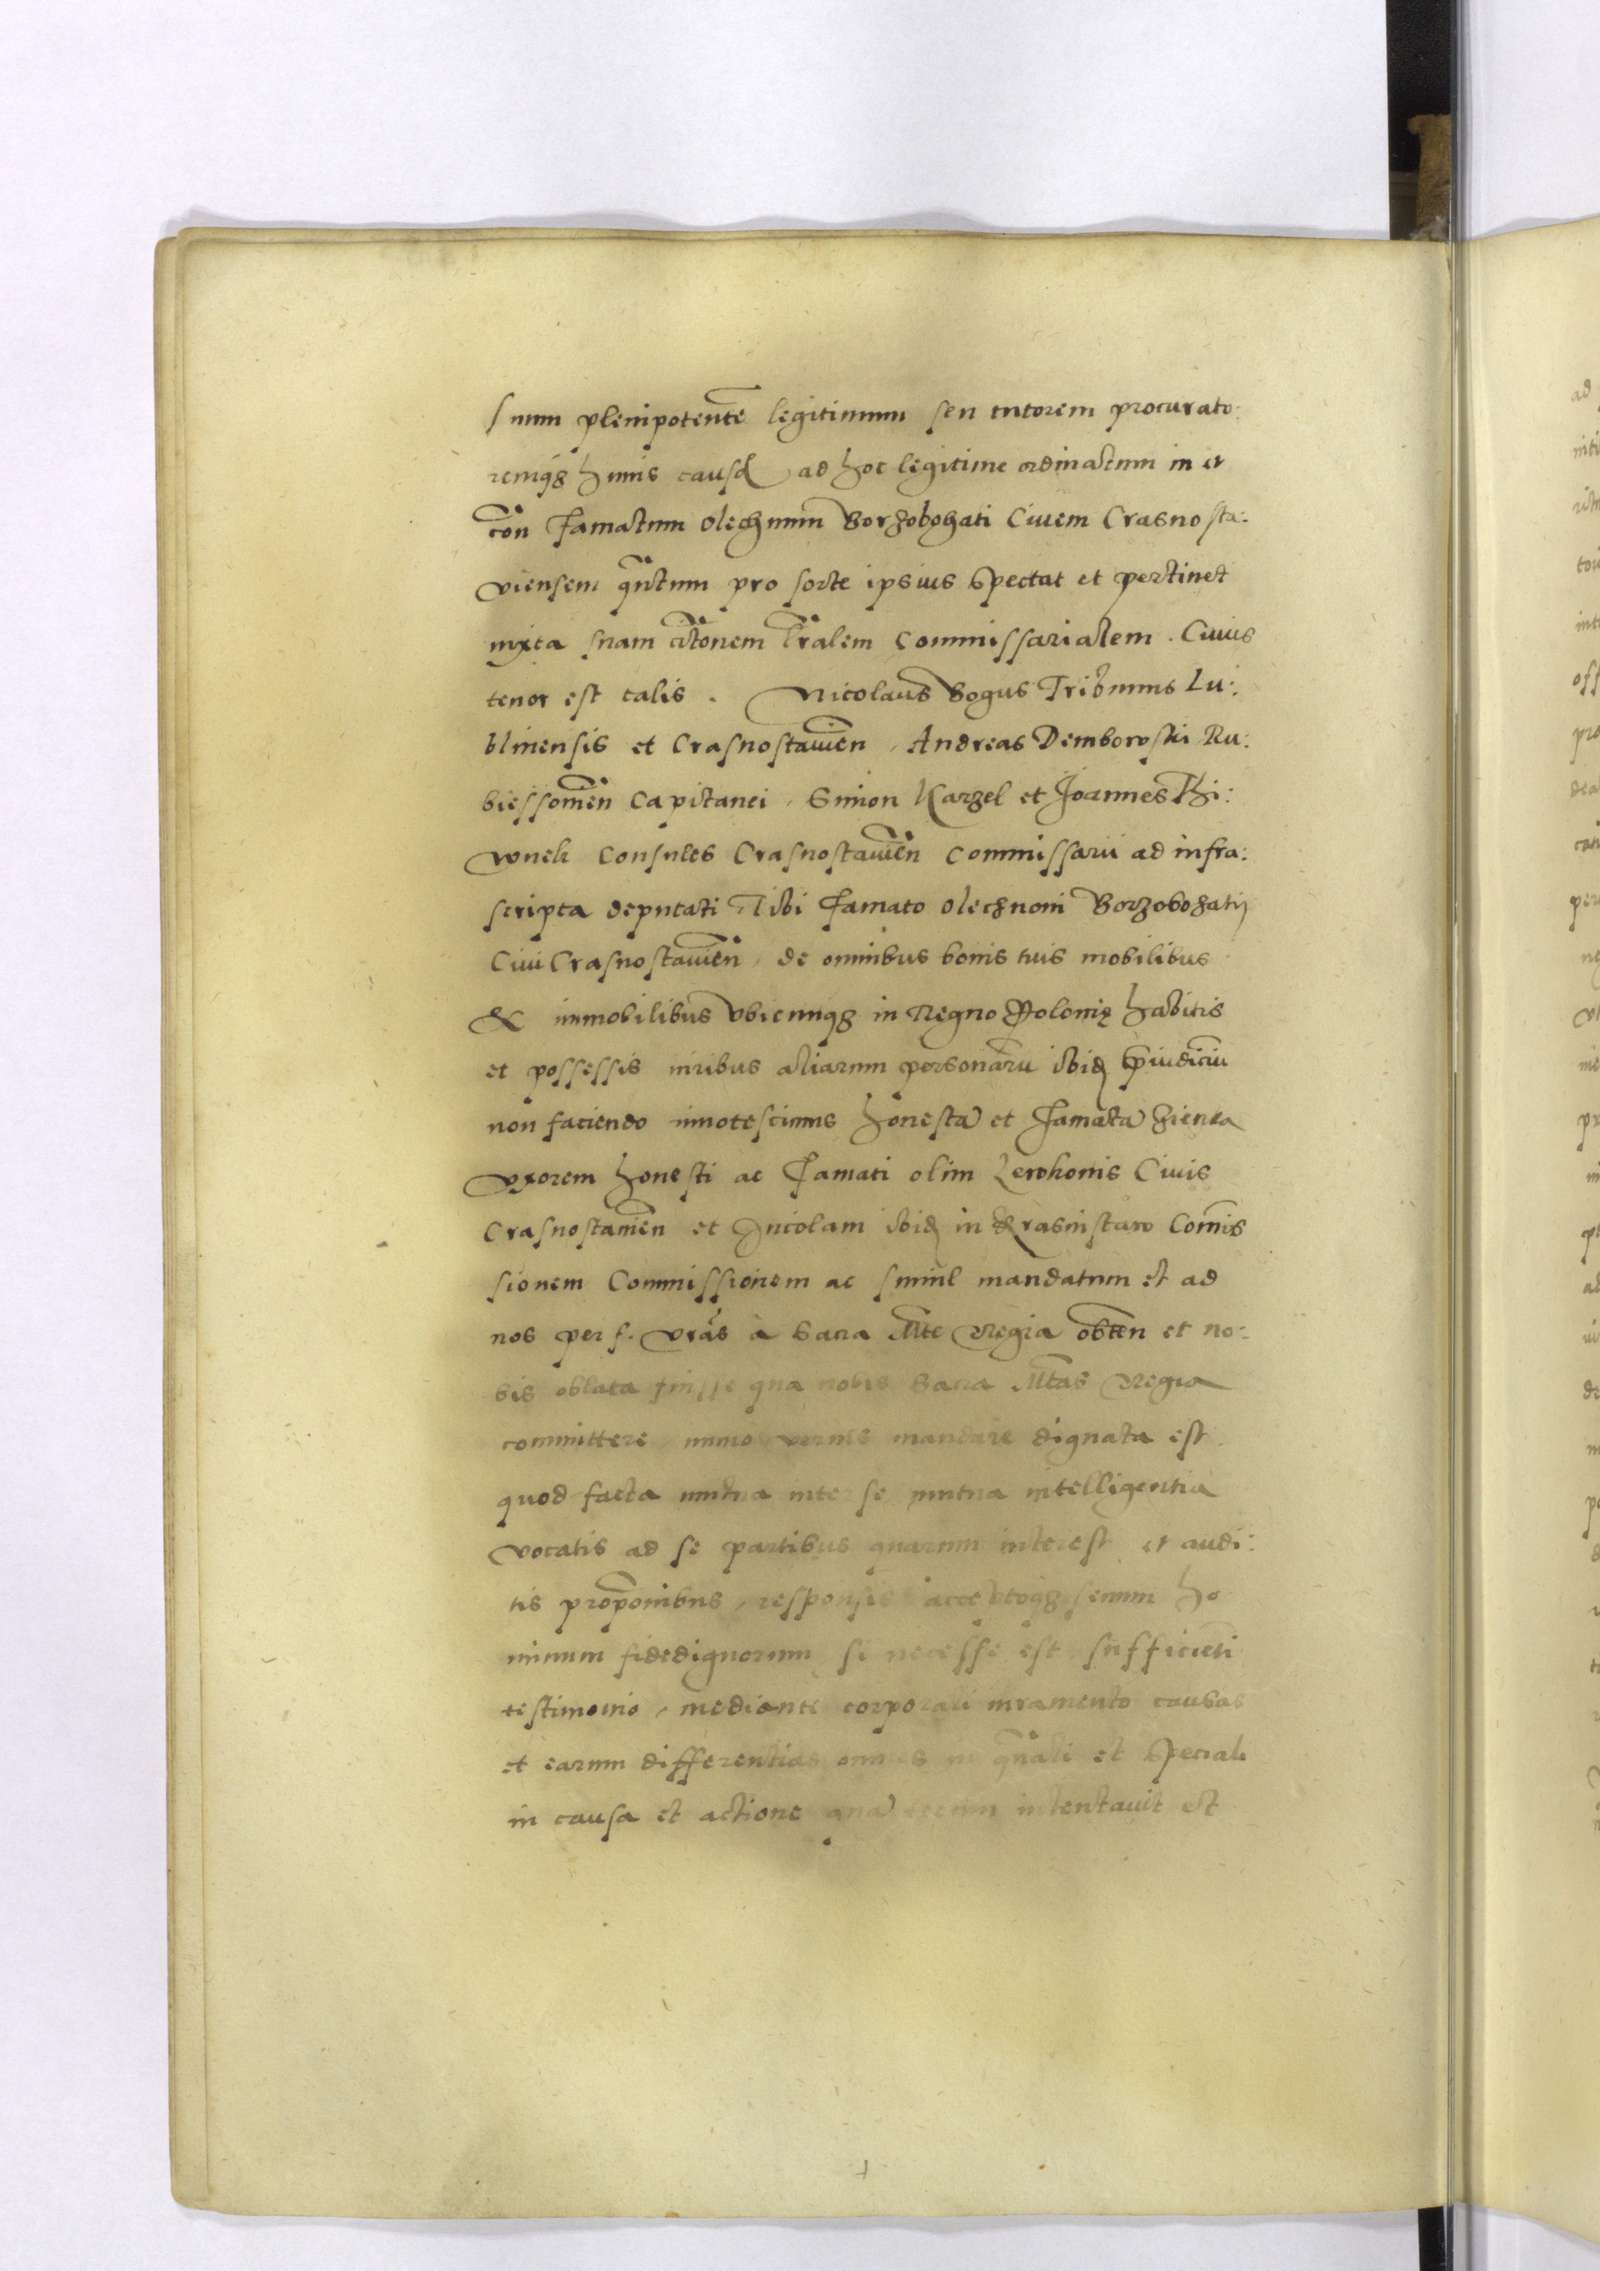 suum plenipotentẽ legitimum seu tutorem procurato:
remq₃ huius causę ad hoc legitime ordinatum in et
con̄ famatum Olechnum Borzobohati Ciuem Crasnosta:
viensem qn̄tum pro sorte ipsius spectat et pertinet
iuxta suam cit̄onem lr̄alem Commissarialem. Cuius
tenor est talis. Nicolaus Bogus Tribunus Lu:
blinensis et Crasnostauieñ, Andreas Dembowski Ru:
biessouieñ Capitanei, Simon Karzel et Joannes Thi:
wnek Consules Crasnostauieñ Commissarii ad infra:
scripta deputati, Tibi famato Olechnoni Borzobohatij
Ciui Crasnostauieñ, de omnibus bonis tuis mobilibus
& immobilibus vbicunq₃ in Regno Polonię habitis
et possessis iuribus aliarum personarū ibid p̄iudiciū
non faciendo innotescimus honesta et famata Hienca
vxorem honesti ac famati olim Lewkonis Ciuis
Crasnostauieñ et Incolam ibid in Krasnistaw Com̄is
sionem Commissionem ac simul mandatum et ad
nos per s. vrãs à Sacra Mt̄e Regia obteñ et no:
bis oblata fuisse qua nobis Sacra Mt̄as Regia
committere, immo verius mandare dignata est
quod facta mutua inter se mutua intelligentia
vocatis ad se partibus quarum interest, et audi:
tis propōnibus, responsis acceptoq₃ secum ho
minum fidedignorum si necesse est sufficiẽti
testimonio, mediante corporali iuramento causas
et earum differentias omnes in gn̄ali et speciali
in causa et actione qua tecum intentauit est